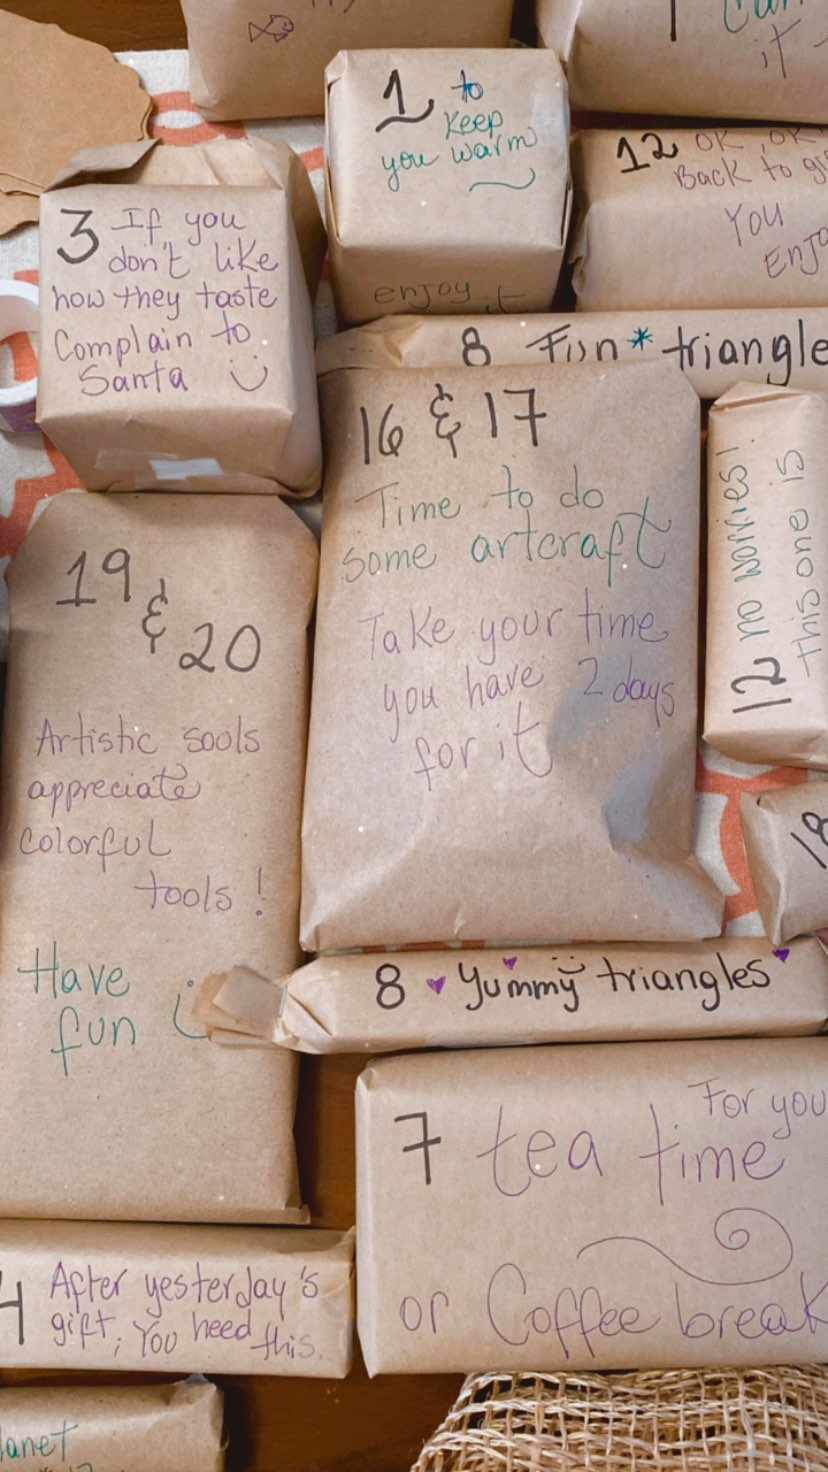 1 to
Keep
you warm
enjoy it
12 OK, OK
Back to
You
3 If you
don't like
how they taste
Complain to
Santa
8 Fun* triangle
16 & 17
Time to do
some artcraft
Take your time
you have 2 days
for it
12 no worries!
this one is
19
&
20
Artistic sools
appreciate
colorful
tools!
Have
fun
18
8 Yummy triangles
7 For you
tea time
or Coffee break
4 After yesterday's
gift, You need
this.
lanet